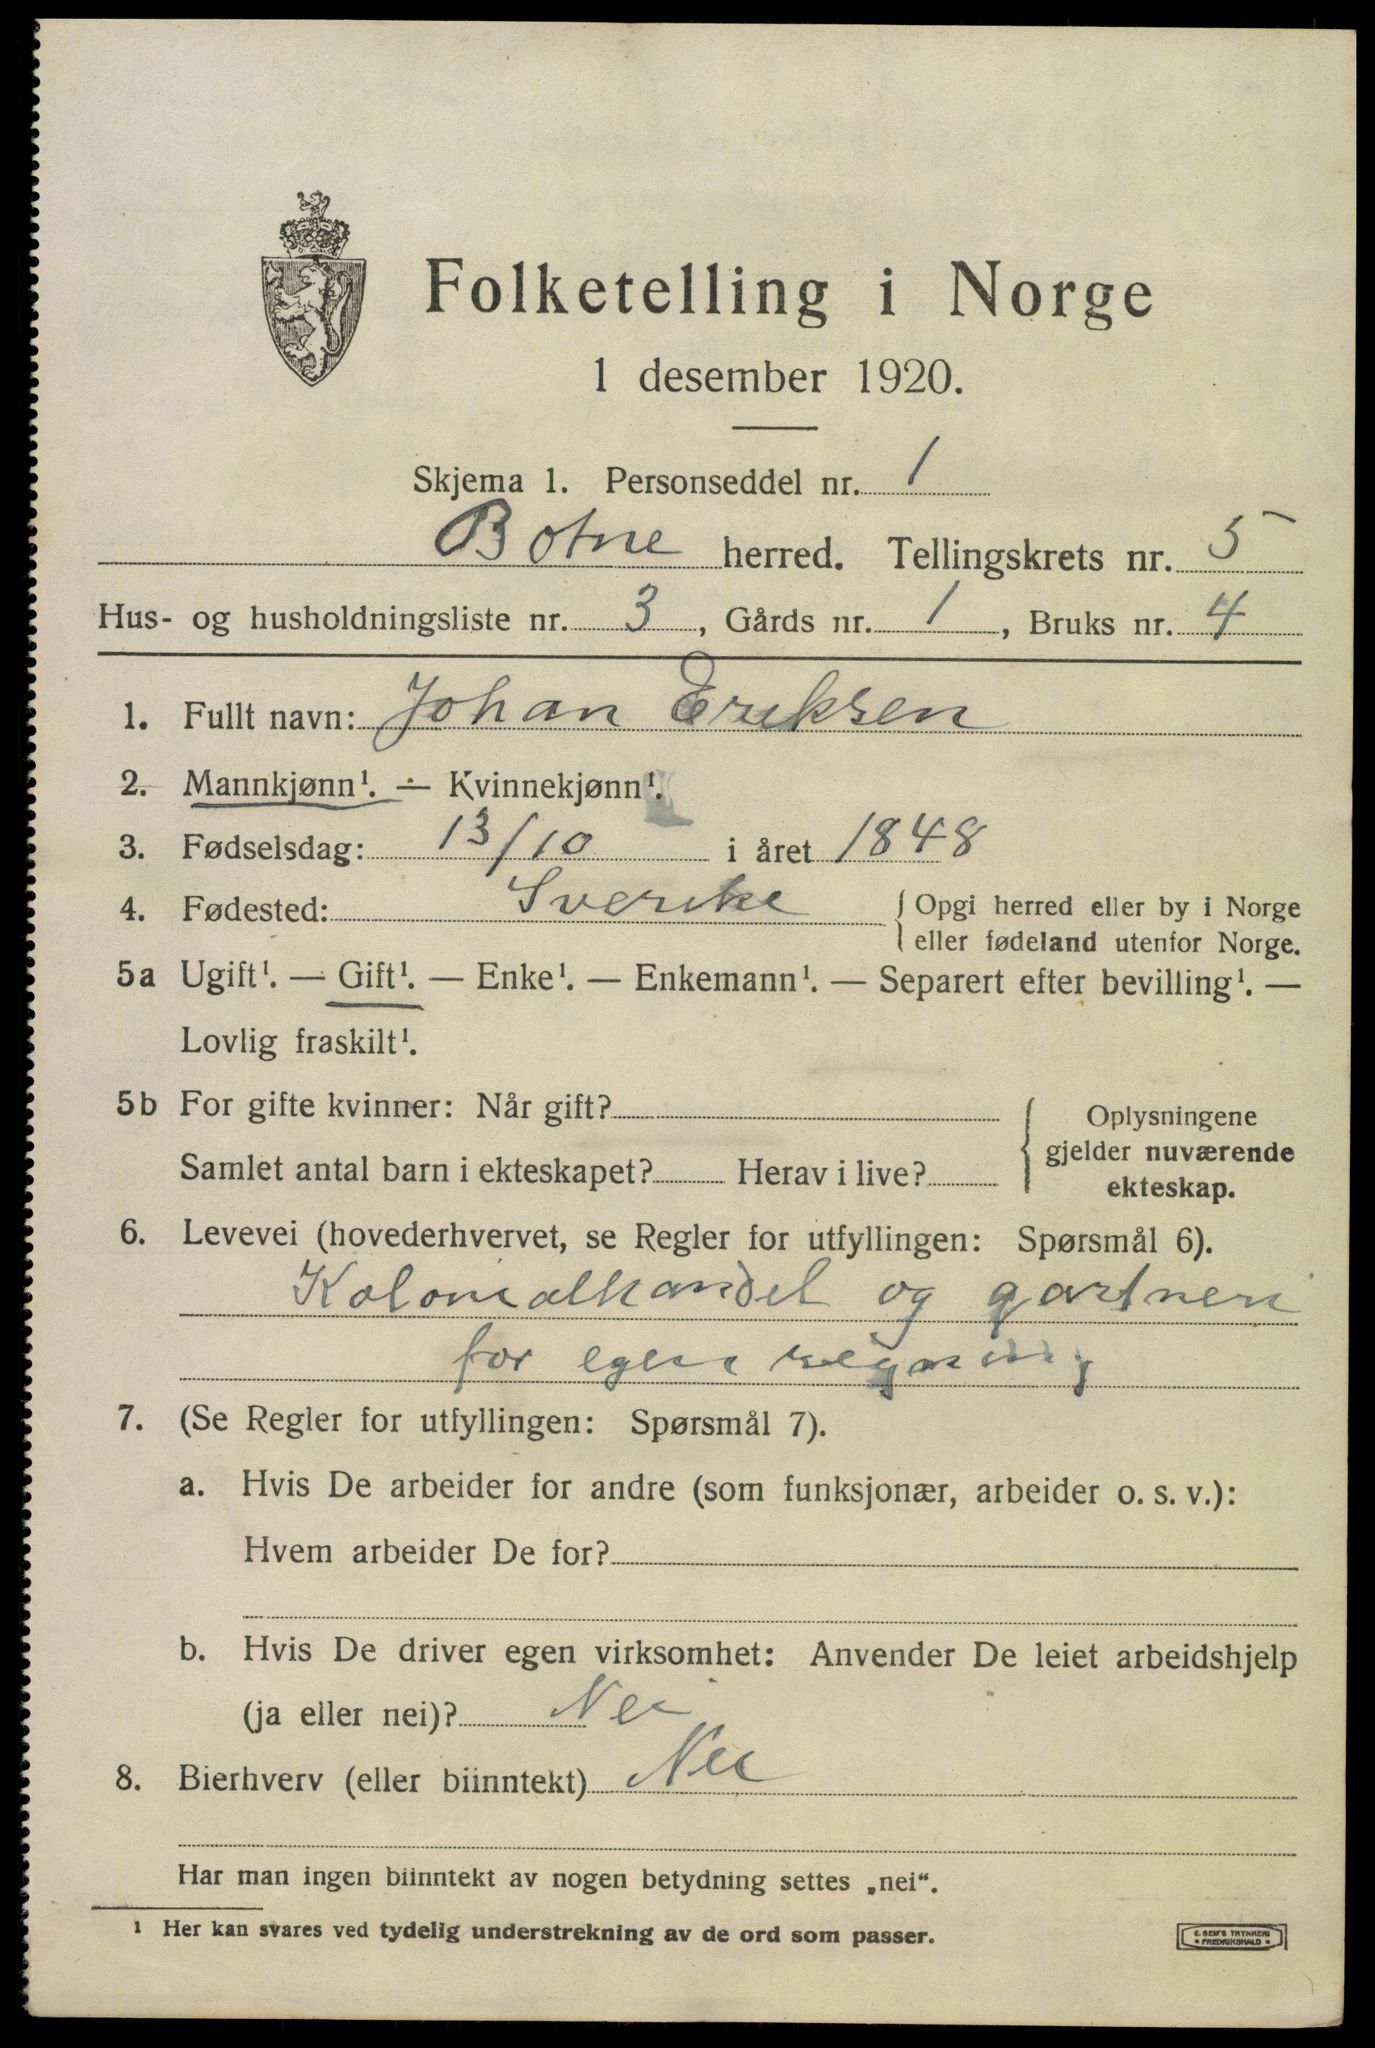 Folketelling i Norge
1 desember 1920.
Skjema 1. Personseddel nr. 1
Botne herred. Tellingskrets nr. 5
Hus- og husholdningsliste nr. 3, Gårds nr. 1, Bruks nr. 4
1. Fullt navn: Johan Eriksen
2. Mannkjønn¹. — Kvinnekjønn¹.
3. Fødselsdag: 13/10 i året 1848
4. Fødested: Sverike { Opgi herred eller by i Norge
eller fødeland utenfor Norge.
5a Ugift¹. — Gift¹. — Enke¹. — Enkemann¹. — Separert efter bevilling¹. —
Lovlig fraskilt¹.
5b For gifte kvinner: Når gift?
Samlet antal barn i ekteskapet? Herav i live?
Oplysningene
gjelder nuværende
ekteskap.
6. Levevei (hovederhvervet, se Regler for utfyllingen: Spørsmål 6).
Kolonialhandel og gartneri
for egen regning
7. (Se Regler for utfyllingen: Spørsmål 7).
a. Hvis De arbeider for andre (som funksjonær, arbeider o. s. v.):
Hvem arbeider De for?
b. Hvis De driver egen virksomhet: Anvender De leiet arbeidshjelp
(ja eller nei)? Nei
8. Bierhverv (eller biinntekt) Nei
Har man ingen biinntekt av nogen betydning settes „nei“.
¹ Her kan svares ved tydelig understrekning av de ord som passer.
E. SEM'S TRYKKERI
• FREDRIKSHALD •